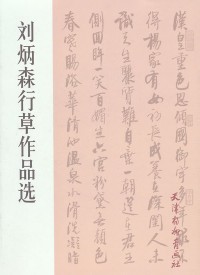 刘炳森行草作品选
漢皇重色思傾國御宇多年求不
得楊家有女初長成養在深閨人未
識天生麗質難自棄一朝選在君王
側回眸一笑百媚生六宮粉黛無顏色
春寒賜浴華清池溫泉水滑洗凝脂
天津楊柳青画社